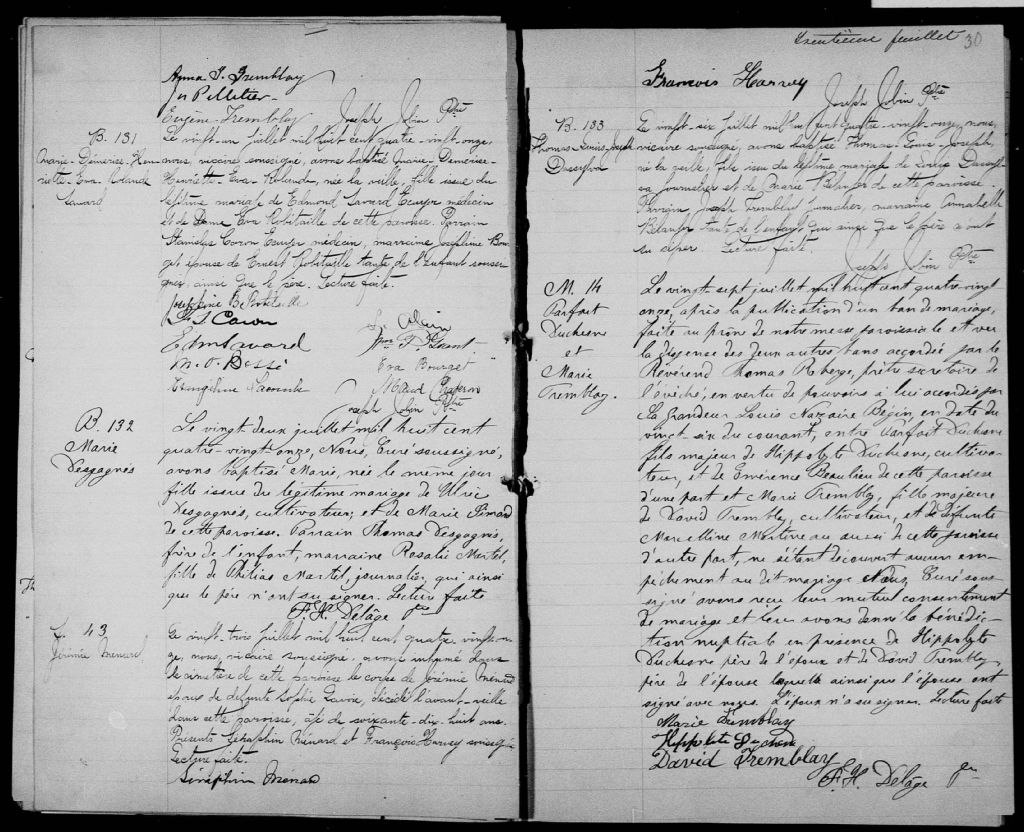 Anna T. Tremblay
Pelletier
Eugène Tremblay Joseph Jobin Ptre
B. 131
Marie-Démerise-Henriette-Eva-Rolande
Savard
Le vingt-un juillet mil huit cent quatre-vingt-onze,
nous, vicaire soussigné, avons baptisé Marie-Démerise-
Henriette-Eva-Rolande, née la veille, fille issue du
légitime mariage de Edmond Savard Ecuyer médecin
et de Dame Eva Robitaille de cette paroisse. Parrain
Stanislas Caron Ecuyer médecin, marraine Joséphine Bour-
get épouse de Ernest Robitaille tante de l'enfant soussi-
gnés, ainsi que le père. Lecture faite.
Joséphine B. Robitaille
F. S. Caron
Alain
Edm Savard
Wm P. Grant
M. O. Bossé
Eva Bourget
Maud
Joseph Jobin Ptre
B. 132
Marie
Desgagnés
Le vingt deux juillet mil huit cent
quatre-vingt onze, Nous, Curé soussigné,
avons baptisé Marie, née le même jour,
fille issue du légitime mariage de Ulric
Desgagnés, cultivateur, et de Marie Simard
de cette paroisse. Parrain Thomas Desgagnés,
frère de l'enfant, marraine Rosalie Martel,
fille de Philias Martel, journalier, qui ainsi
que le père n'ont su signer. Lecture faite
F. X. Delâge Ptre
S. 43
Jérémie Ménard
Le vingt-trois juillet mil huit cent quatre-vingt-on-
ze, nous, vicaire soussigné, avons inhumé dans
le cimetière de cette paroisse le corps de Jérémie Ménard
époux de défunte Sophie Lavoie, décédé l'avant-veille
dans cette paroisse, âgé de soixante-dix-huit ans.
Présents Séraphin Ménard et François Harvey soussignés
Lecture faite.
Séraphin Ménard
trentième feuillet 30
François Harvey
Joseph Jobin Ptre
B. 133
Thomas-Louis-Joseph
Le vingt-six juillet mil huit cent quatre-vingt-onze, nous,
vicaire soussigné, avons baptisé Thomas-Louis-Joseph,
né la veille, fils issu du légitime mariage de Louis
journalier et de Marie Bélanger de cette paroisse.
Parrain, Joseph Tremblay journalier, marraine Annabelle
Bélanger tante de l'enfant qui ainsi que le père n'ont
su signer. Lecture faite.
Joseph Jobin Ptre
M. 14
Parfait
Duchesne
et
Marie
Tremblay.
Le vingt sept juillet mil huit cent quatre-vingt
onze, après la publication d'un ban de mariage,
faite au prône de notre messe paroissiale et vu
la dispense des deux autres bans accordée par le
Révérend Thomas Roberge, prêtre secrétaire de
l'évêché, en vertu de pouvoirs à lui accordés par
Sa Grandeur Louis Nazaire Bégin, en date du
vingt-six du courant, entre Parfait Duchesne
fils majeur de Hippolyte Duchesne, cultiva-
teur, et de Emérence Beaulieu de cette paroisse
d'une part et Marie Tremblay, fille majeure
de David Tremblay, cultivateur, et de défunte
Marcelline Martineau aussi de cette paroisse
d'autre part, ne s'étant découvert aucun em-
pêchement au dit mariage Nous, Curé sous-
signé avons reçu leur mutuel consentement
de mariage et leur avons donné la bénédic-
tion nuptiale en présence de Hippolyte
Duchesne père de l'époux et de David Tremblay
père de l'épouse laquelle ainsi que l'épouse ont
signé avec nous. L'époux n'a su signer. Lecture faite
Marie Tremblay
Hippolite Duchene
David Tremblay
F. X. Delâge Ptre